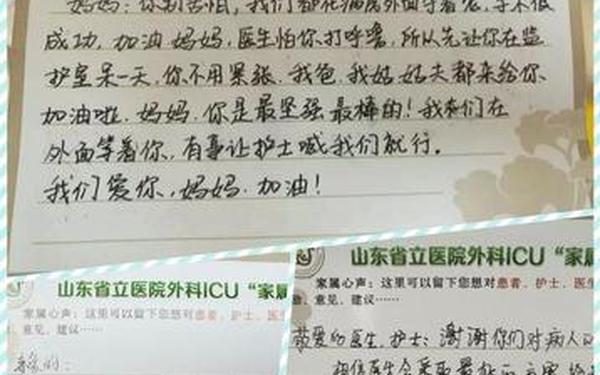 妈妈：你别害怕，我们都在病房外面守着你，手术很
成功，加油妈妈，医生怕你打呼噜，所以先让你在监
护室呆一天，你不用紧张，我爸，我姑，姑夫都来给你
加油啦，妈妈，你是最坚强最棒的！我们在
外面等着你，有事让护士喊我们就行。
我们爱你，妈妈，加油！
山东省立医院外科ICU“家属
家属心声：这里可以留下您想对患者、护士、医
意见、建议……
亲爱的：
山东省立医院外科ICU“家
家属心声：这里可以留下您想对患者、护士、医生
意见、建议……
敬爱的医生、护士：谢谢你们对病人
相信医生会采取最好的方案